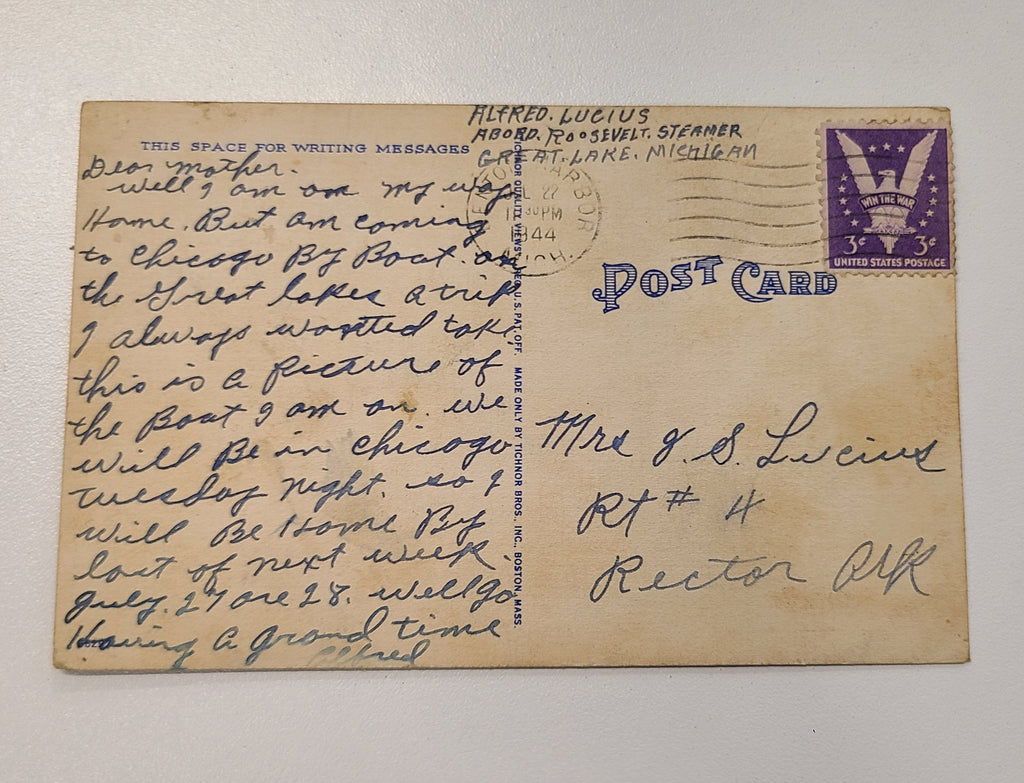 ALFRED. LUCIUS
ABORD. ROOSEVELT. STEAMER
GREAT. LAKE. MICHIGAN
THIS SPACE FOR WRITING MESSAGES
Dear Mother.
Well I am on my way
Home. But am coming
to Chicago By Boat. on
the Great lakes a trip
I always wanted take
this is a Picture of
the Boat I am on. we
will Be in Chicago
Tuesday Night. so I
will Be Home By
last of next week
July. 27 are 28. well go
Having a grand time
Alfred
TICHNOR QUALITY VIEWS REG. U. S. PAT. OFF. MADE ONLY BY TICHNOR BROS., INC., BOSTON, MASS.
BENTON HARBOR
22
30 PM
1944
MICH.
WIN THE WAR
3¢ 3¢
UNITED STATES POSTAGE
POST CARD
Mrs J. S. Lucius
Rt # 4
Rector Ark